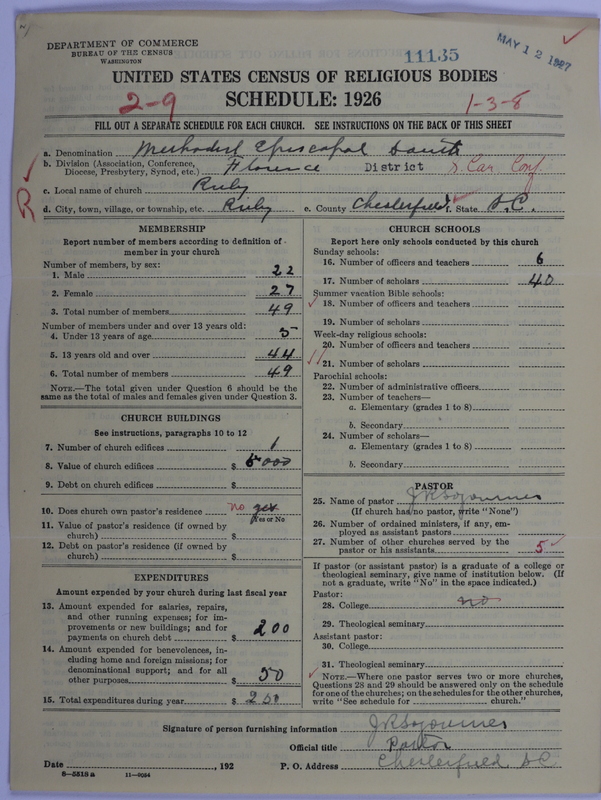 DEPARTMENT OF COMMERCE
BUREAU OF THE CENSUS
WASHINGTON
11135
MAY 12 1927
UNITED STATES CENSUS OF RELIGIOUS BODIES
SCHEDULE: 1926
2-9
1-3-8
FILL OUT A SEPARATE SCHEDULE FOR EACH CHURCH. SEE INSTRUCTIONS ON THE BACK OF THIS SHEET
a. Denomination Methodist Episcopal South
b. Division (Association, Conference, Diocese, Presbytery, Synod, etc.) Florence District S. Car. Conf.
c. Local name of church Ruby
d. City, town, village, or township, etc. Ruby e. County Chesterfield f. State S.C.
MEMBERSHIP
Report number of members according to definition of member in your church
Number of members, by sex:
1. Male 22
2. Female 27
3. Total number of members 49
Number of members under and over 13 years old:
4. Under 13 years of age 5
5. 13 years old and over 44
6. Total number of members 49
NOTE.—The total given under Question 6 should be the same as the total of males and females given under Question 3.
CHURCH BUILDINGS
See instructions, paragraphs 10 to 12
7. Number of church edifices 1
8. Value of church edifices $ 5000
9. Debt on church edifices $
10. Does church own pastor's residence no yes
Yes or No
11. Value of pastor's residence (if owned by church) $
12. Debt on pastor's residence (if owned by church) $
EXPENDITURES
Amount expended by your church during last fiscal year
13. Amount expended for salaries, repairs, and other running expenses; for improvements or new buildings; and for payments on church debt $ 200
14. Amount expended for benevolences, including home and foreign missions; for denominational support; and for all other purposes $ 50
15. Total expenditures during year $ 250
CHURCH SCHOOLS
Report here only schools conducted by this church
Sunday schools:
16. Number of officers and teachers 6
17. Number of scholars 40
Summer vacation Bible schools:
18. Number of officers and teachers
19. Number of scholars
Week-day religious schools:
20. Number of officers and teachers
21. Number of scholars
Parochial schools:
22. Number of administrative officers
23. Number of teachers—
a. Elementary (grades 1 to 8)
b. Secondary
24. Number of scholars—
a. Elementary (grades 1 to 8)
b. Secondary
PASTOR
25. Name of pastor J R Sojourner
(If church has no pastor, write "None")
26. Number of ordained ministers, if any, employed as assistant pastors
27. Number of other churches served by the pastor or his assistants 5
If pastor (or assistant pastor) is a graduate of a college or theological seminary, give name of institution below. (If not a graduate, write "No" in the space indicated.)
Pastor:
28. College no
29. Theological seminary
Assistant pastor:
30. College
31. Theological seminary
NOTE.—Where one pastor serves two or more churches, Questions 28 and 29 should be answered only on the schedule for one of the churches; on the schedules for the other churches, write "See schedule for church."
Signature of person furnishing information J R Sojourner
Official title Pastor
Date , 192 P. O. Address Chesterfield SC
8-5518 a 11-9034